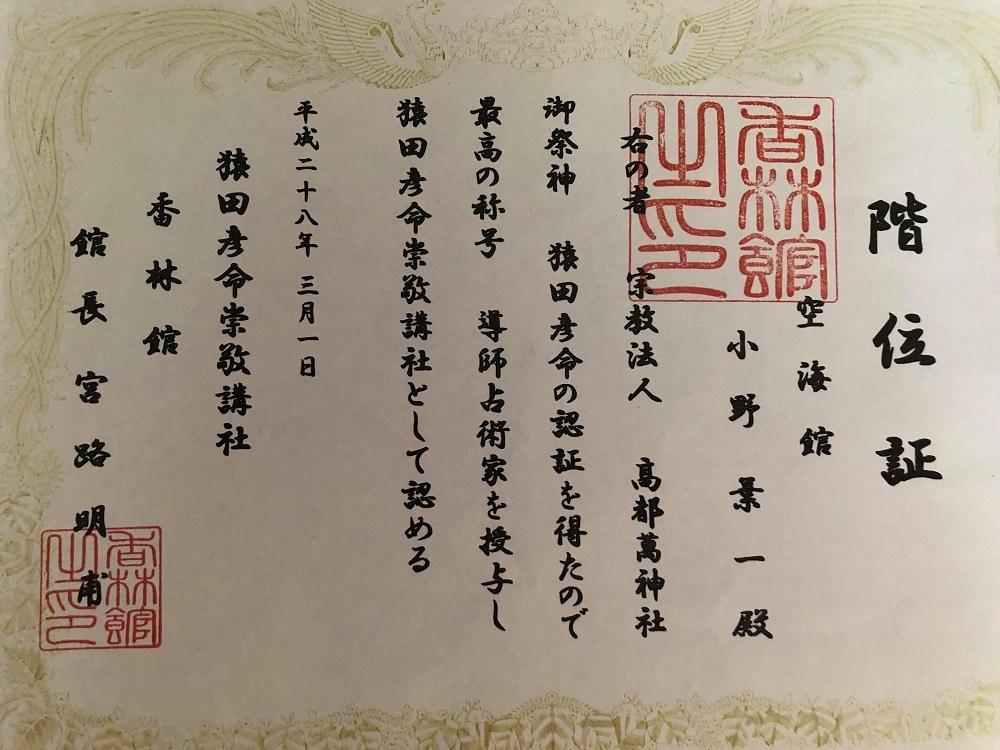 階位証
空海館
小野葉一殿
右の者 宗教法人 高都萬神社
御祭神 猿田彦命の認証を得たので
最高の称号 導師占術家を授与し
猿田彦命崇敬講社として認める
平成二十八年 三月一日
猿田彦命崇敬講社
香林館
館長宮路明甫
香林館之印
香林館之印